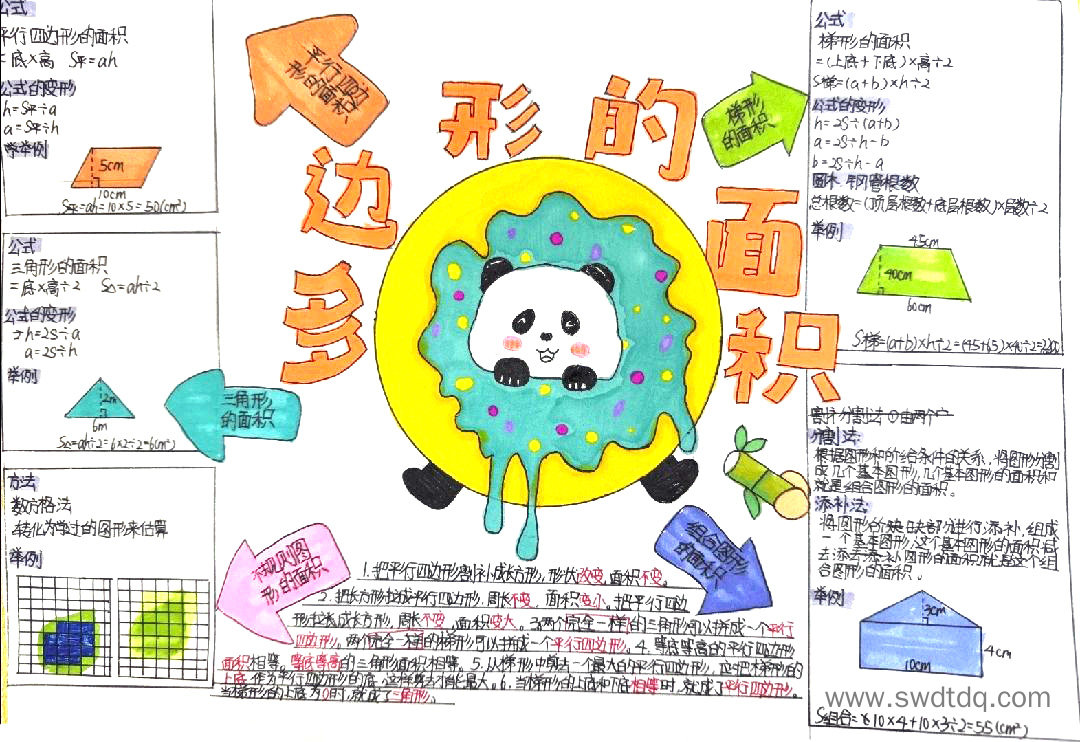 公式
平行四边形的面积
=底×高 S平=ah
公式的变形
h=S平÷a
a=S平÷h
举例
5cm
10cm
S平=ah=10×5=50(cm²)
公式
三角形的面积
=底×高÷2 S△=ah÷2
公式的变形
h=2S÷a
a=2S÷h
举例
2m
6m
S△=ah÷2=6×2÷2=6(m²)
方法
数方格法
转化为学过的图形来估算
举例
平行四边
形的面积
多边形的面积
梯形
的面积
三角形
的面积
不规则图
形的面积
组合图形
的面积
1.把平行四边形割补成长方形,形状改变,面积不变。
2.把长方形拉成平行四边形,周长不变,面积变小。把平行四边
形拉成长方形,周长不变,面积变大。3.两个完全一样的三角形可以拼成一个平行
四边形。两个完全一样的梯形可以拼成一个平行四边形。4.等底等高的平行四边形
面积相等。等底等高的三角形面积相等。5.从梯形中剪去一个最大的平行四边形,应把梯形的
上底作为平行四边形的底,这样剪去才能最大。6.当梯形的上底和下底相等时,就成了平行四边形。
当梯形的上底为0时,就成了三角形。
公式
梯形的面积
=(上底+下底)×高÷2
S梯=(a+b)×h÷2
公式的变形
h=2S÷(a+b)
a=2S÷h-b
b=2S÷h-a
圆木、钢管根数
总根数=(顶层根数+底层根数)×层数÷2
举例
45cm
40cm
60cm
S梯=(a+b)×h÷2
分割法:
根据图形和所给条件的关系,将图形分割
成几个基本图形,几个基本图形的面积和
就是组合图形的面积。
添补法:
将图形的缺口部分进行添补,组成
一个基本图形,这个基本图形的面积减
去添补图形的面积就是这个组
合图形的面积。
举例
3cm
4cm
10cm
S组合=10×4+10×3÷2=55(cm²)
www.swdtdq.com